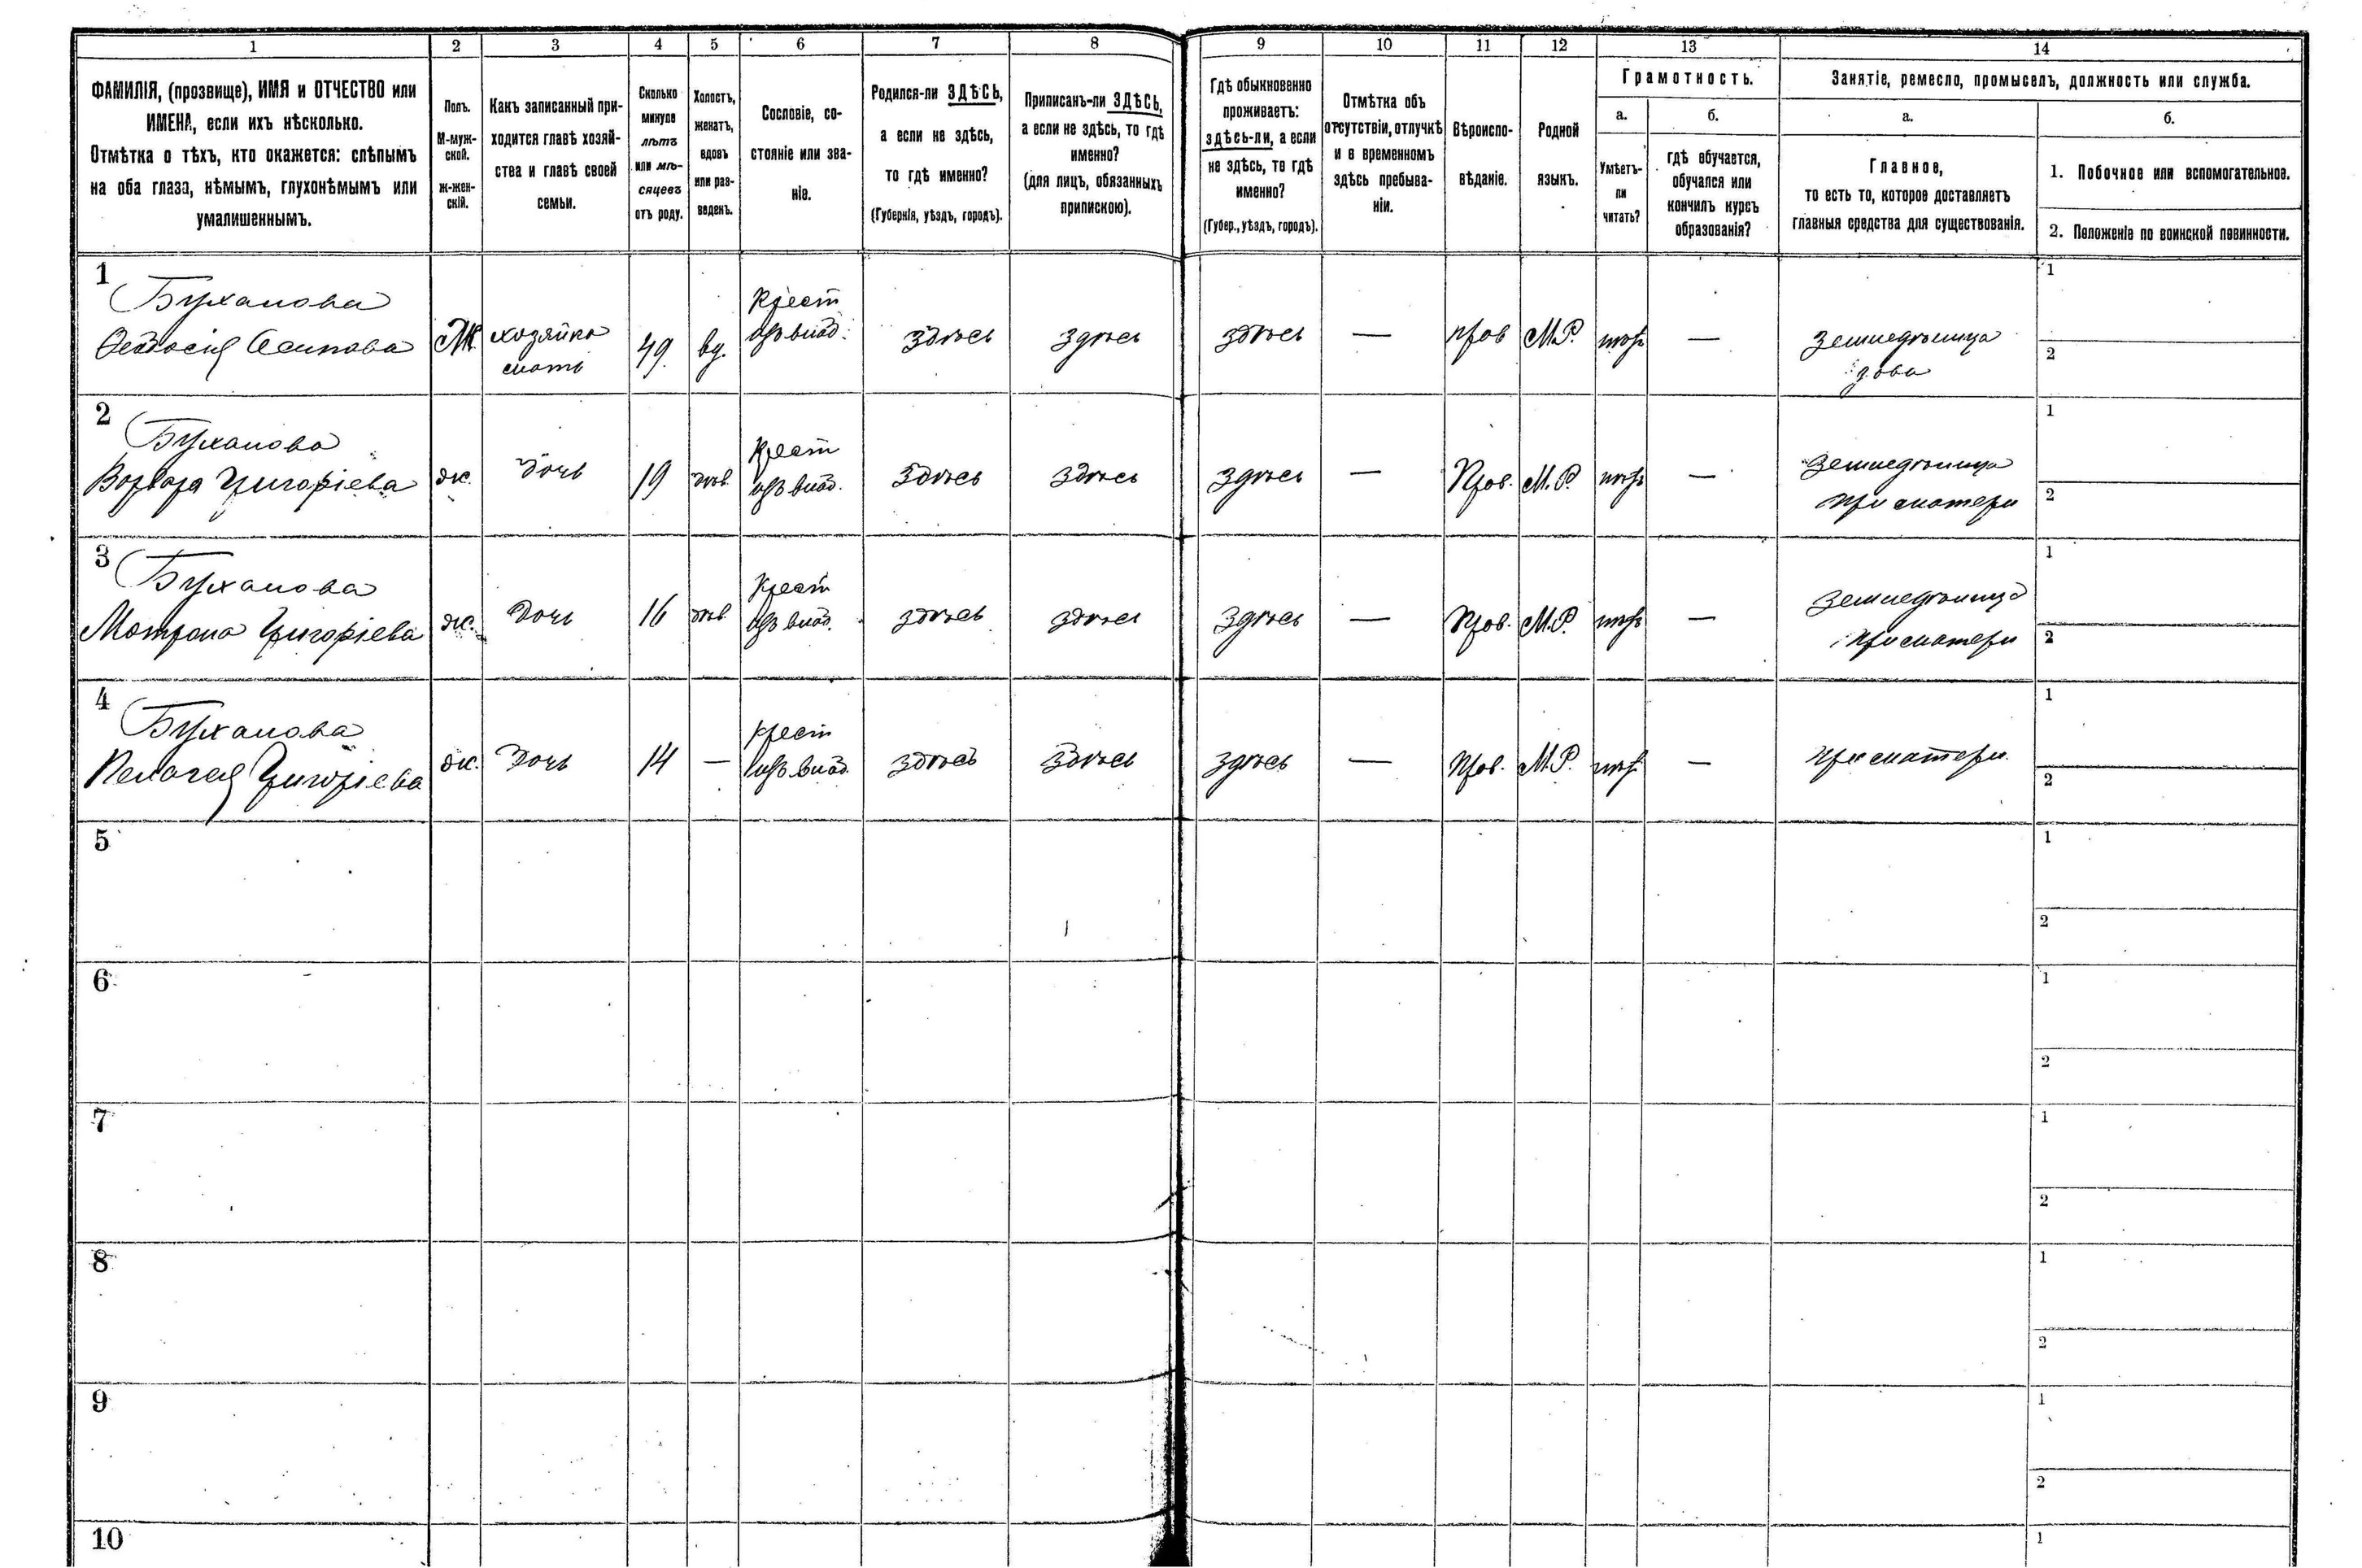 1 2 3 4 5 6 7 8 9 10 11 12 13 14
ФАМИЛІЯ, (прозвище), ИМЯ и ОТЧЕСТВО или
ИМЕНА, если ихъ нѣсколько.
Отмѣтка о тѣхъ, кто окажется: слѣпымъ
на оба глаза, нѣмымъ, глухонѣмымъ или
умалишеннымъ.
Полъ.
М-муж-
ской.
ж-жен-
скій.
Какъ записанный при-
ходится главѣ хозяй-
ства и главѣ своей
семьи.
Сколько
минуло
лѣтъ
или мѣ-
сяцевъ
отъ роду.
Холостъ,
женатъ,
вдовъ
или раз-
веденъ.
Сословіе, со-
стояніе или зва-
ніе.
Родился-ли ЗДѢСЬ,
а если не здѣсь,
то гдѣ именно?
(Губернія, уѣздъ, городъ).
Приписанъ-ли ЗДѢСЬ,
а если не здѣсь, то гдѣ
именно?
(для лицъ, обязанныхъ
припискою).
Гдѣ обыкновенно
проживаетъ:
здѣсь-ли, а если
не здѣсь, то гдѣ
именно?
(Губер., уѣздъ, городъ).
Отмѣтка объ
отсутствіи, отлучкѣ
и о временномъ
здѣсь пребыва-
ніи.
Вѣроиспо-
вѣданіе.
Родной
языкъ.
Грамотность.
а.
Умѣетъ-
ли
читать?
б.
гдѣ обучается,
обучался или
кончилъ курсъ
образованія?
Занятіе, ремесло, промыселъ, должность или служба.
а.
Главное,
то есть то, которое доставляетъ
главныя средства для существованія.
б.
1. Побочное или вспомогательное.
2. Положеніе по воинской повинности.
1
Буханова
Ѳеодосія Осипова
Ж
хозяйка
мать
49.
вд.
Крест
изъ влад.
здѣсь
здѣсь
здѣсь
—
прав
М.Р.
—
земледѣлица
1
2
2
Буханова
Варвара Григоріева
ж.
дочь
19
дѣв.
Крест
изъ влад.
здѣсь
здѣсь
здѣсь
—
Прав.
М.Р.
—
земледѣлица
при матери
1
2
3
Буханова
Матрона Григоріева
ж.
дочь
16
дѣв.
Крест
изъ влад.
здѣсь
здѣсь
здѣсь
—
Прав.
М.Р.
—
земледѣлица
при матери
1
2
4
Буханова
Пелагея Григоріева
ж.
Дочь
14
—
крест
изъ влад.
здѣсь
здѣсь
здѣсь
—
прав.
М.Р.
—
при матери.
1
2
5
1
2
6
1
2
7
1
2
8
1
2
9
1
2
10
1